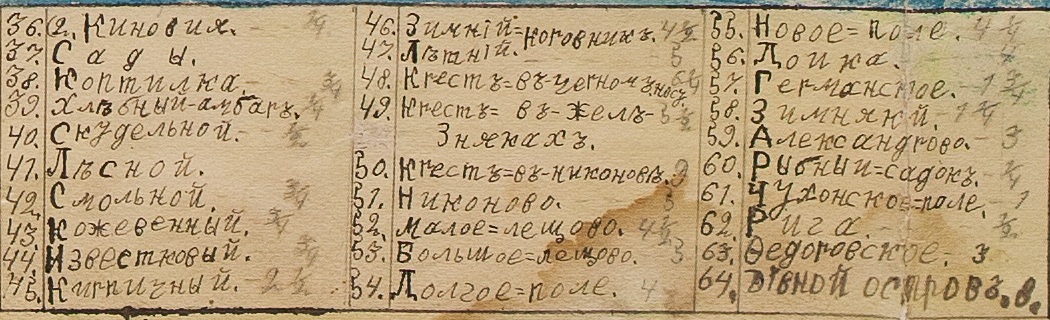 36. 2. Киновия. ¾
37. Сады.
38. Коптилка. ¾
39. Хлѣбный-амбаръ. ¼
40. Скудельной. ½
41. Лѣсной.
42. Смольной. ¾
43. Кожевенный. ¾
44. Известковый. ¾
45. Кирпичный. 2½
46. Зимнiй=
47. Лѣтнiй. Коровникъ. 4½
5
48. Крестъ=въ-черномъ носу.
49. Крестъ= въ-желѣ- 5½
знякахъ.
50. Крестъ=въ-никоновѣ. 3
51. Никоново. 3
52. Малое=лещово. 4½
53. Большое=лещово. 3
54. Долгое=поле. 4
55. Новое=поле. 4¼
56. Доика.
57. Германское. 1¾
58. Зимняки. 1¼
59. Александрово. 3
60. Рыбный=садокъ. ¼
61. Чухонское=поле. 1
62. Рига. ½
63. Ѳедоровское. 3
64. Дiвной островъ. 8.